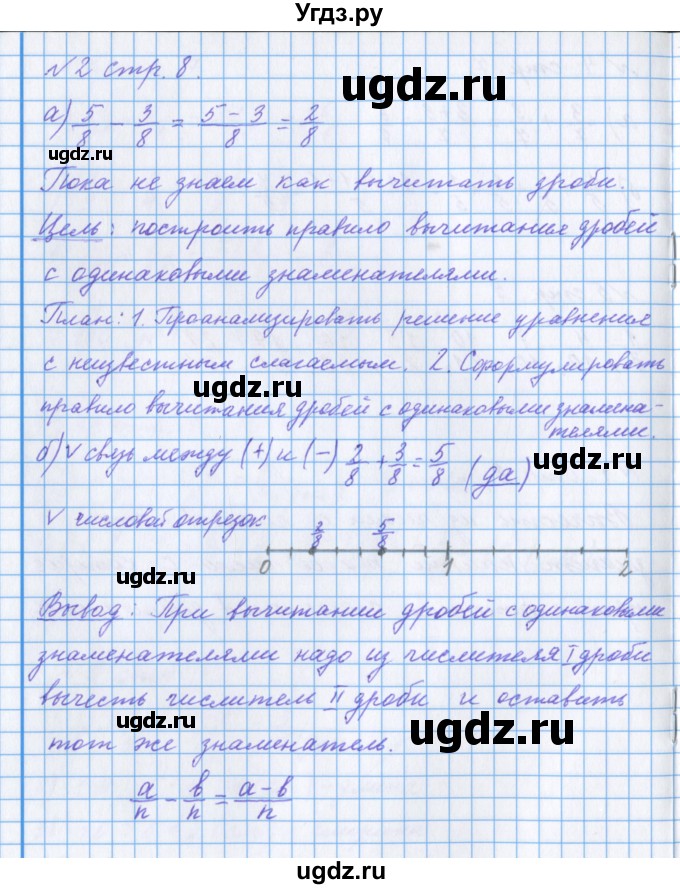 Угдз.ру
№2 стр. 8.
ugdz.ru
а) 5/8 - 3/8 = (5-3)/8 = 2/8
ugdz.ru
Пока не знаем как вычитать дроби.
Цель: построить правило вычитания дробей
с одинаковыми знаменателями.
План: 1. Проанализировать решение уравнения
с неизвестным слагаемым. 2. Сформулировать
ugdz.ru
правило вычитания дробей с одинаковыми знамена-
телями.
б) V связь между (+) и (-) 2/8 + 3/8 = 5/8 (да)
ugdz.ru
V числовой отрезок
2/8 5/8
0 1 2
ugdz.ru
Вывод: При вычитании дробей с одинаковыми
знаменателями надо из числителя I дроби
вычесть числитель II дроби и оставить
тот же знаменатель.
ugdz.ru
ugdz.ru
a/n - b/n = (a-b)/n
ugdz.ru